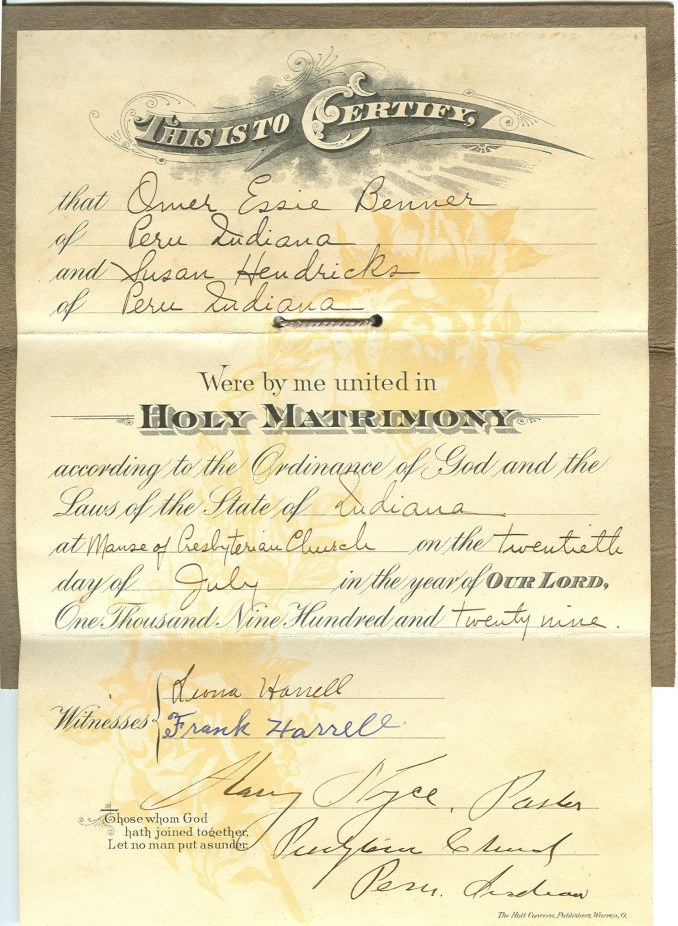 THIS IS TO CERTIFY,
that Omer Essie Benner
of Peru Indiana
and Susan Hendricks
of Peru Indiana
Were by me united in
HOLY MATRIMONY
according to the Ordinance of God and the
Laws of the State of Indiana
at Manse of Presbyterian Church on the twentieth
day of July in the year of OUR LORD,
One Thousand Nine Hundred and twenty nine.
Witnesses
Leona Harrell
Frank Harrell
Harry Nyce, Pastor
Those whom God
hath joined together,
Let no man put asunder.
Presbyterian Church
Peru, Indiana
The Holt Concern, Publishers, Warren, O.